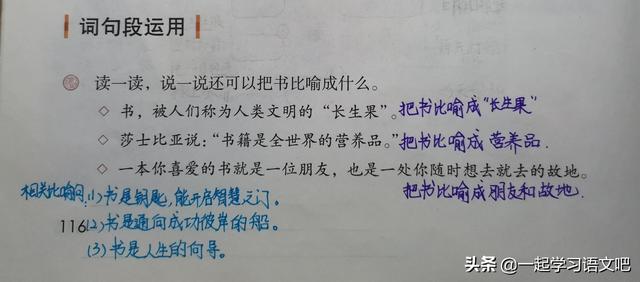 词句段运用
读一读，说一说还可以把书比喻成什么。
◇ 书，被人们称为人类文明的“长生果”。把书比喻成“长生果”
◇ 莎士比亚说：“书籍是全世界的营养品。”把书比喻成营养品.
◇ 一本你喜爱的书就是一位朋友，也是一处你随时想去就去的故地。
把书比喻成朋友和故地.
相关比喻句：(1)书是钥匙，能开启智慧之门。
116 (2)书是通向成功彼岸的船。
(3)书是人生的向导。
头条 @一起学习语文吧